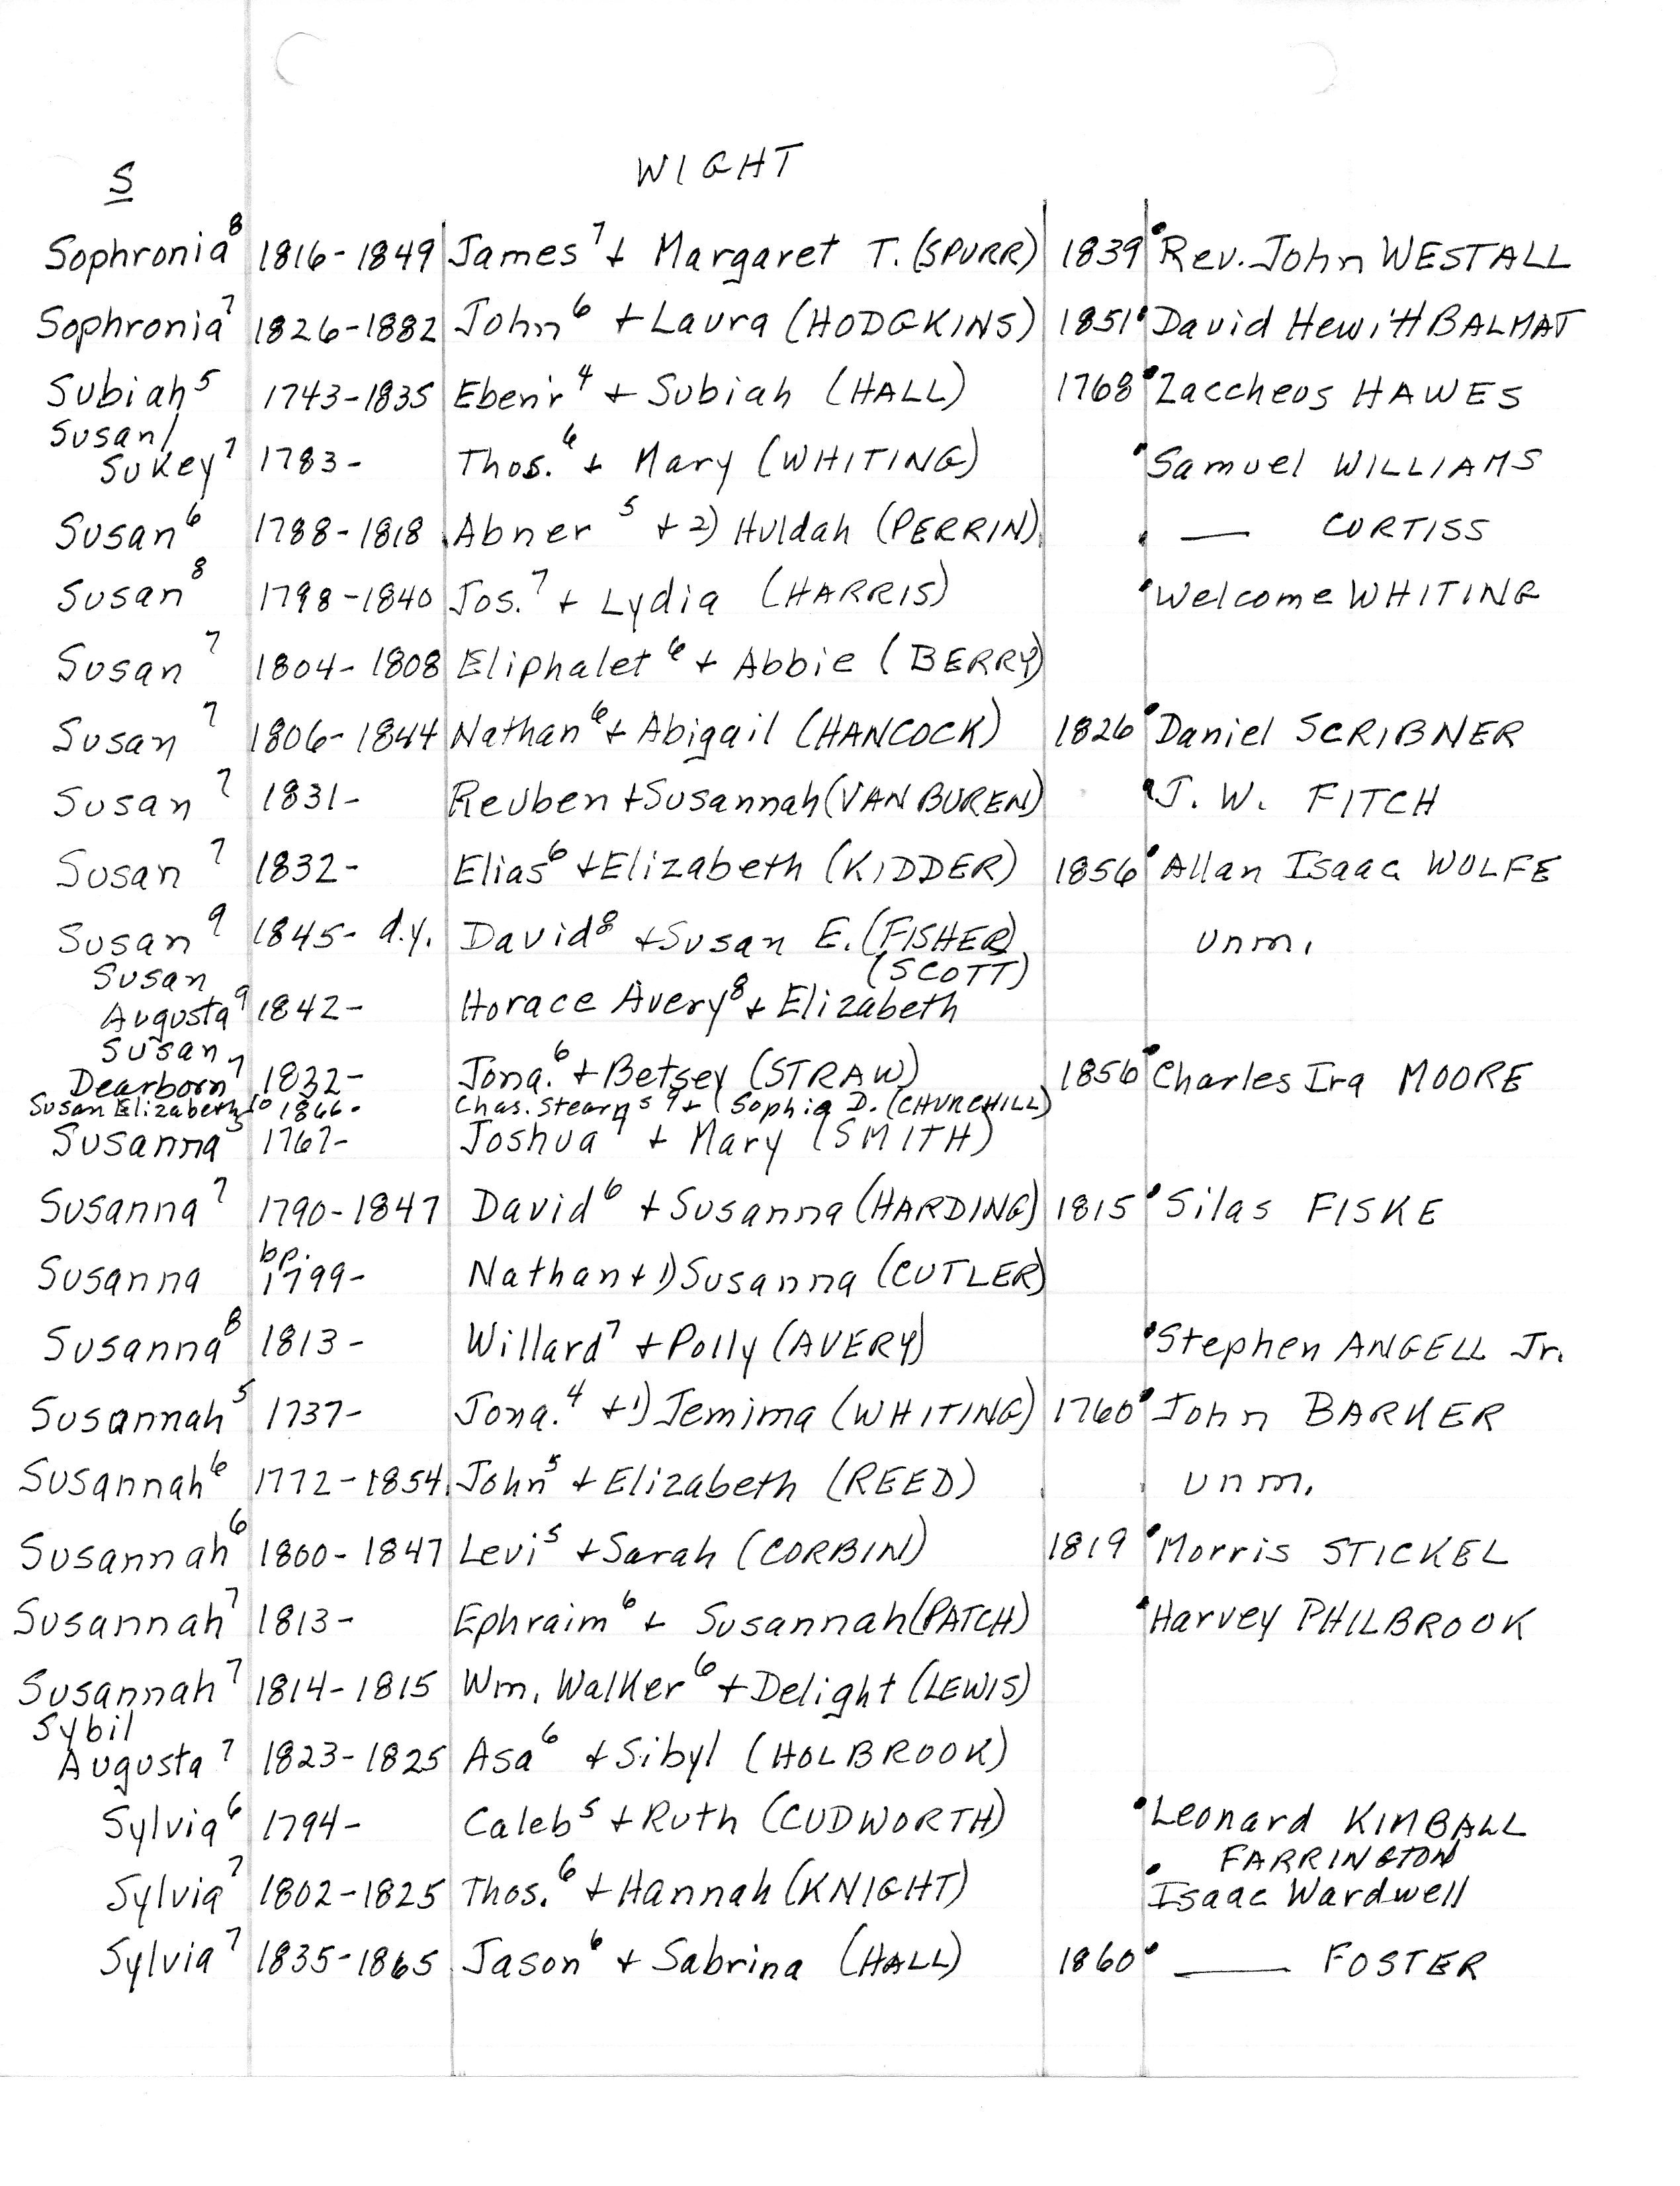 S WIGHT
Sophronia⁸ 1816-1849 James⁷ + Margaret T. (SPURR) 1839 Rev. John WESTALL
Sophronia⁷ 1826-1882 John⁶ + Laura (HODGKINS) 1851 David Hewitt BALMAT
Subiah⁵ 1743-1835 Eben'r⁴ + Subiah (HALL) 1768 Zaccheos HAWES
Susan/
Sukey⁷ 1783- Thos.⁶ + Mary (WHITING) Samuel WILLIAMS
Susan⁶ 1788-1818 Abner⁵ + 2) Huldah (PERRIN) — CURTISS
Susan⁸ 1798-1840 Jos.⁷ + Lydia (HARRIS) Welcome WHITING
Susan⁷ 1804-1808 Eliphalet⁶ + Abbie (BERRY)
Susan⁷ 1806-1844 Nathan⁶ + Abigail (HANCOCK) 1826 Daniel SCRIBNER
Susan⁷ 1831- Reuben + Susannah (VAN BUREN) J. W. FITCH
Susan⁷ 1832- Elias⁶ + Elizabeth (KIDDER) 1856 Allan Isaac WOLFE
Susan⁹ 1845- d.y. David⁸ + Susan E. (FISHER) unm.
Susan (SCOTT)
Augusta⁹ 1842- Horace Avery⁸ + Elizabeth
Susan
Dearborn⁷ 1832- Jona.⁶ + Betsey (STRAW) 1856 Charles Ira MOORE
Susan Elizabeth¹⁰ 1866- Chas. Stearns⁹ + Sophia D. (CHURCHILL)
Susanna⁵ 1767- Joshua⁴ + Mary (SMITH)
Susanna⁷ 1790-1847 David⁶ + Susanna (HARDING) 1815 Silas FISKE
bp.
Susanna 1799- Nathan + 1) Susanna (CUTLER)
Susanna⁸ 1813- Willard⁷ + Polly (AVERY) Stephen ANGELL Jr.
Susannah⁵ 1737- Jona.⁴ + 1) Jemima (WHITING) 1760 John BARKER
Susannah⁶ 1772-1854 John⁵ + Elizabeth (REED) unm.
Susannah⁶ 1800-1847 Levi⁵ + Sarah (CORBIN) 1819 Morris STICKEL
Susannah⁷ 1813- Ephraim⁶ + Susannah (PATCH) Harvey PHILBROOK
Susannah⁷ 1814-1815 Wm. Walker⁶ + Delight (LEWIS)
Sybil
Augusta⁷ 1823-1825 Asa⁶ + Sibyl (HOLBROOK)
Sylvia⁶ 1794- Caleb⁵ + Ruth (CUDWORTH) Leonard KIMBALL
FARRINGTON
Sylvia⁷ 1802-1825 Thos.⁶ + Hannah (KNIGHT) Isaac Wardwell
Sylvia⁷ 1835-1865 Jason⁶ + Sabrina (HALL) 1860 — FOSTER